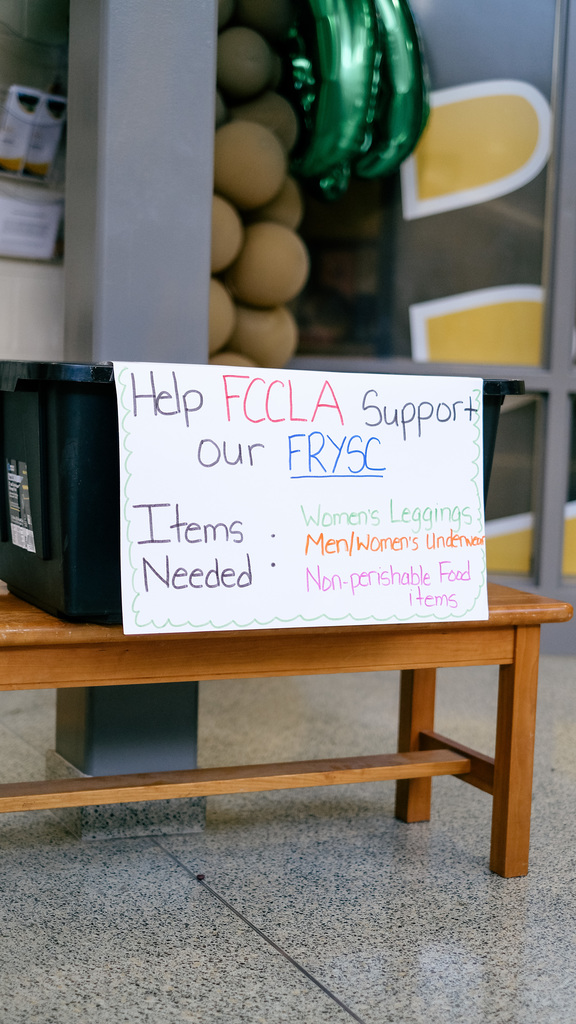 Help FCCLA Support
our FRYSC
Items Needed :
Women's Leggings
Men/Women's Underwear
Non-perishable Food
items